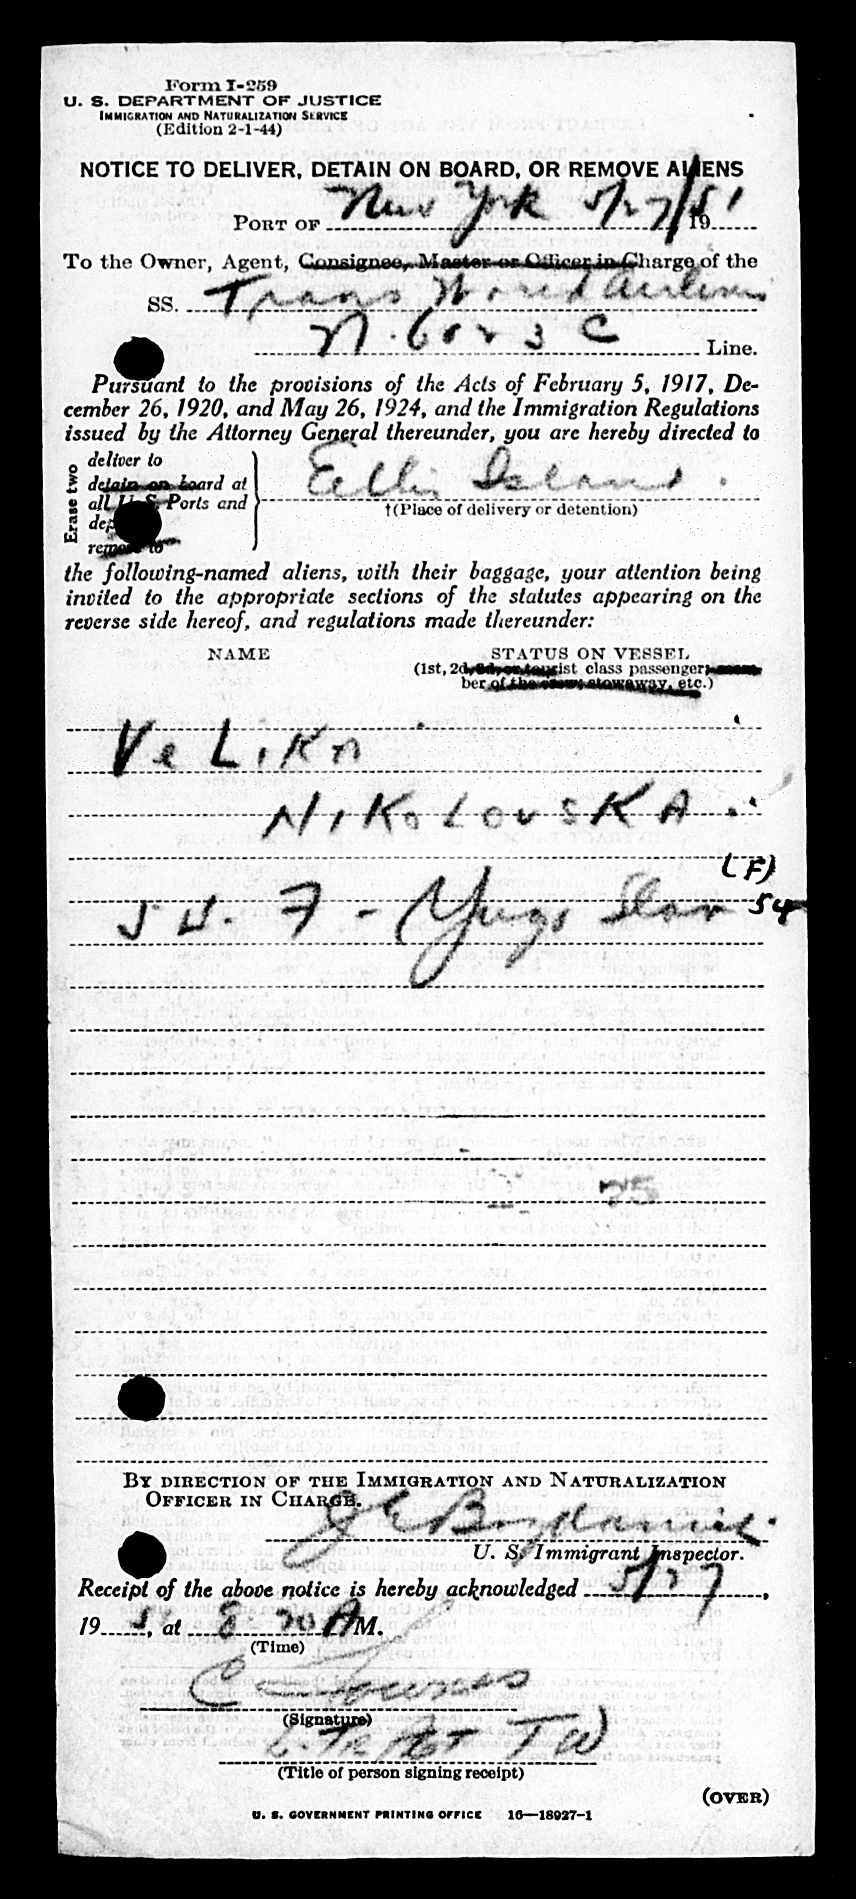 Form I-259
U. S. DEPARTMENT OF JUSTICE
IMMIGRATION AND NATURALIZATION SERVICE
(Edition 2-1-44)
NOTICE TO DELIVER, DETAIN ON BOARD, OR REMOVE ALIENS
PORT OF New York 5/27/1951
To the Owner, Agent, Consignee, Master or Officer in Charge of the
SS. Trans World Airlines
N. 60 3 C Line.
Pursuant to the provisions of the Acts of February 5, 1917, De-
cember 26, 1920, and May 26, 1924, and the Immigration Regulations
issued by the Attorney General thereunder, you are hereby directed to
Erase two
deliver to
detain on board at
all U. S. Ports and
dep
remove to
Ellis Island.
†(Place of delivery or detention)
the following-named aliens, with their baggage, your attention being
invited to the appropriate sections of the statutes appearing on the
reverse side hereof, and regulations made thereunder:
NAME STATUS ON VESSEL
(1st, 2d, 3d, or tourist class passenger; mem-
ber of the crew; stowaway, etc.)
VeLiKA
NIKOLOVSKA
(F)
54. F - Yugo Slav 54
25
BY DIRECTION OF THE IMMIGRATION AND NATURALIZATION
OFFICER IN CHARGE.
U. S. Immigrant Inspector.
Receipt of the above notice is hereby acknowledged 5/27,
195, at 8 30 A M.
(Time)
(Signature)
TW
(Title of person signing receipt)
(OVER)
U. S. GOVERNMENT PRINTING OFFICE 16—18927-1